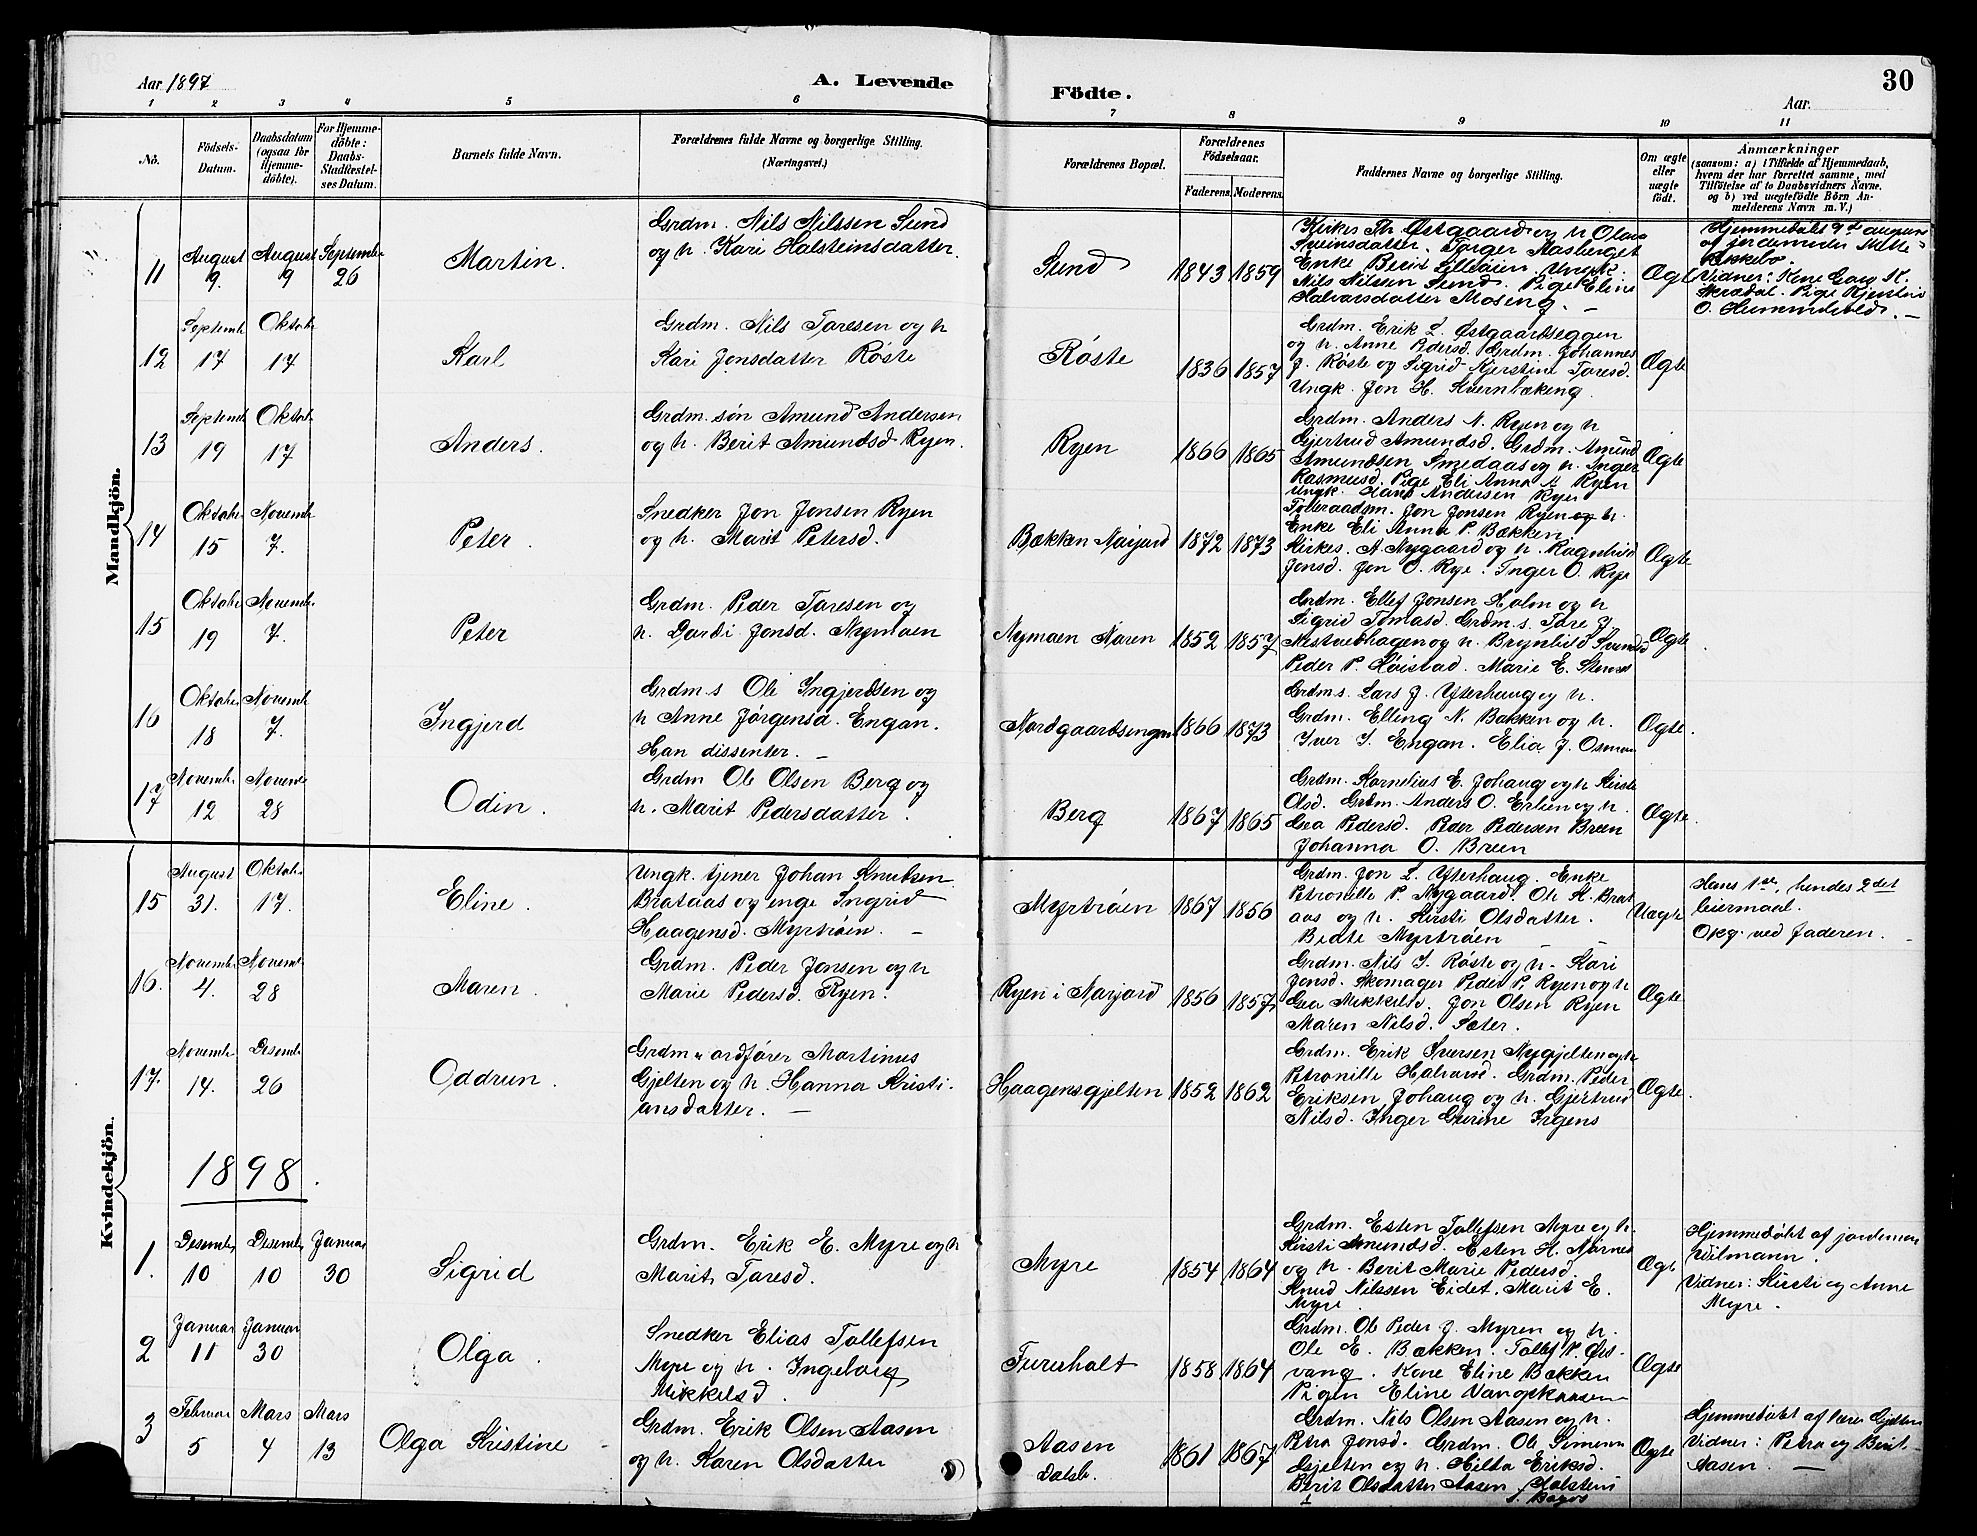 Aar 1897
A. Levende
Födte.
Aar.
30
1 2 3 4 5 6 7 8 9 10 11
No.
Födsels-
Datum.
Daabsdatum
(ogsaa for
Hjemme-
döbte).
For Hjemme-
döbte:
Daabs-
Stadfæstel-
ses Datum.
Barnets fulde Navn.
Forældrenes fulde Navne og borgerlige Stilling.
(Næringsvei.)
Forældrenes Bopæl.
Forældrenes
Födselsaar.
Faderens. Moderens.
Faddernes Navne og borgerlige Stilling.
Om ægte
eller
uægte
født.
Anmærkninger
(saasom: a) i Tilfælde af Hjemmedaab,
hvem der har forrettet samme, med
Tilföielse af to Daabsvidners Navne.
og b) ved uægtefödte Börn An-
melderens Navn m. V.)
Mandkjön.
11
August
9.
August
9
Septembr
26
Martin.
Grdm. Nils Nilssen Sund
og h. Kari Halsteinsdatter.
Sund
1843 1859
Kirkes. Th. Østgaard og h Olava
Sveinsdatter. Torger Aasberget
Enke Berit Lilleöien. Ungk.
Nils Nilssen Sund. Pige Eline
Halvorsdatter Moseng.
Ægte
Hjemmedöbt 9de august
af jordemoder Mette
Bakkebø.
Vidner:
12
Septemb
17
Oktob.
17
Karl
Grdm. Nils Toresen og h
Kari Jonsdatter Røste
Røste
1836 1857
Grdm. Erik L. Østgaardseggen
og h. Anne Pedersd. Grdm. Johannes
J. Røste og Sigrid Kjerstine Toresd.
Ungk. Jon H. Kvernbækeng.
Ægte
13
Septemb
19
Oktob.
17
Anders.
Grdm. søn Amund Andersen
og h. Berit Amundsd. Ryen.
Ryen
1866 1865
Grdm. Anders N. Ryen og h
Gjertrud Amundsd. Grdm. Amund
Amundsen Smedaas og h. Inger
Rasmusd. Pige Eli Anna A Ryen
Ungk. Hans Andersen Ryen
Ægte
14
Oktobr.
15
Novemb
7.
Peter.
Snedker Jon Jonsen Ryen
og h. Marit Petersd.
Bækken Narjord
1872 1873
Jon Jonsen Ryen og h.
Enke Eli Anna P. Bækken
Kirkes. A Nygaard og h. Ragnhild
Jonsd. Jon O. Rye. Inger O. Rye
Ægte
15
Oktobr.
19
Novemb.
7.
Peter
Grdm. Peder Toresen og
h. Dordi Jonsd. Nymoen
Nymoen Noren
1852 1857
Grdm. Ellef Jonsen Holm og h
Sigrid Tomasd. Grdm.s. Tore J.
Nestvebhagen og h. Brynhild Svensd
Peder P. Høistad. Marie E.
Ægte
16
Oktobr.
18
Novemb
7.
Ingjerd
Grdm.s Ole Ingjerdsen og
h Anne Jørgensd. Engan.
Han dissenter.
Nordgaardsengen
1866 1873
Grdm.s. Lars J. Ytterhaug og h.
Grdm. Elling N. Bakken og h.
Iver I. Engan. Elia J. Osmoen
Ægte.
17
Novemb.
12
Novemb
28
Odin.
Grdm Ole Olsen Berg og
h. Marit Pedersdatter.
Berg
1867 1865
Grdm. Kornelius E. Johaug og h Kirsti
Olsd. Grdm. Anders O. Erlien og h.
Gea Pedersd. Peder Pedersen Breen
Johanna O. Breen
Ægte.
Kvindekjön.
15
August
31.
Oktob.
17.
Eline.
Ungk. tjener Johan Knutsen
Brataas og enge Ingrid
Haagensd. Myrtrøen.
Myrtrøen
1867 1856
Grdm. Jon L. Ytterhaug. Enke
Petronille P. Nygaard. Ole K. Brat
aas og h. Kirsti Olsdatter.
Beate Myrtrøen
Uægte
Hans 1ste, hendes 2det
leiermaal.
Opg. ved faderen.
16.
Novemb.
4.
Novemb
28
Maren.
Grdm. Peder Jonsen og h
Marie Pedersd. Ryen.
Ryen i Narjord
1856 1857
Grdm. Nils J. Røste og h. Kari
Jonsd. Skomager Peder P. Ryen og h
Gea Mikkelsd. Jon Olsen Ryen
Maren Nilsd. Sæter.
Ægte
17.
Novemb.
14.
Desemb
26
Oddrun.
Grdm & ordfører Martinus
Gjelten og h. Hanna Kristi-
ansdatter.
Haagensgjelten
1852 1862
Grdm. Erik Iversen Nygjelten og h
Petronille Halvorsd. Grdm. Peder
Eriksen Johaug og h. Gjertrud
Nilsd. Inger Gurine Irgens
Ægte.
1898.
1.
Desemb.
10
Desemb.
10
Januar
30
Sigrid
Grdm. Erik E. Myre og h
Marit Toresd.
Myre
1854 1864
Grdm. Esten Tollefsen Myre og h.
Kirsti Amundsd. Esten H. Nørnes
og h. Berit Marie Pedersd
Knud Nilssen Eidet. Marit E.
Myre.
Ægte
Hjemmedøbt af jordemor
Wilmann.
Vidner: Kirsti og Anne
Myre.
2
Januar
11
Januar
30
Olga.
Snedker Elias Tollefsen
Myre og h. Ingeborg
Mikkelsd.
Furuholt
1858 1864
Grdm. Ole Peder J. Myren og h.
Ole E. Bakken. Tollef P. Øst-
vang. Kone Eline Bakken
Pigen Eline Vangskaasen
Ægte
3
Februar
5
Mars
4
Mars
13
Olga Kristine
Grdm. Erik Olsen Aasen
og h. Karen Olsdatter
Aasen
Dalsb.
1861 1867
Grdm. Nils Olsen Aasen og h.
Petra Jonsd. Grdm. Ole Simensen
Gjelten og h. Hilda Eriksd.
Berit Olsdatter Aasen
Ægte
Hjemmedøbt af lærer Gjelten
Vidner: Petra og Berit
Aasen.